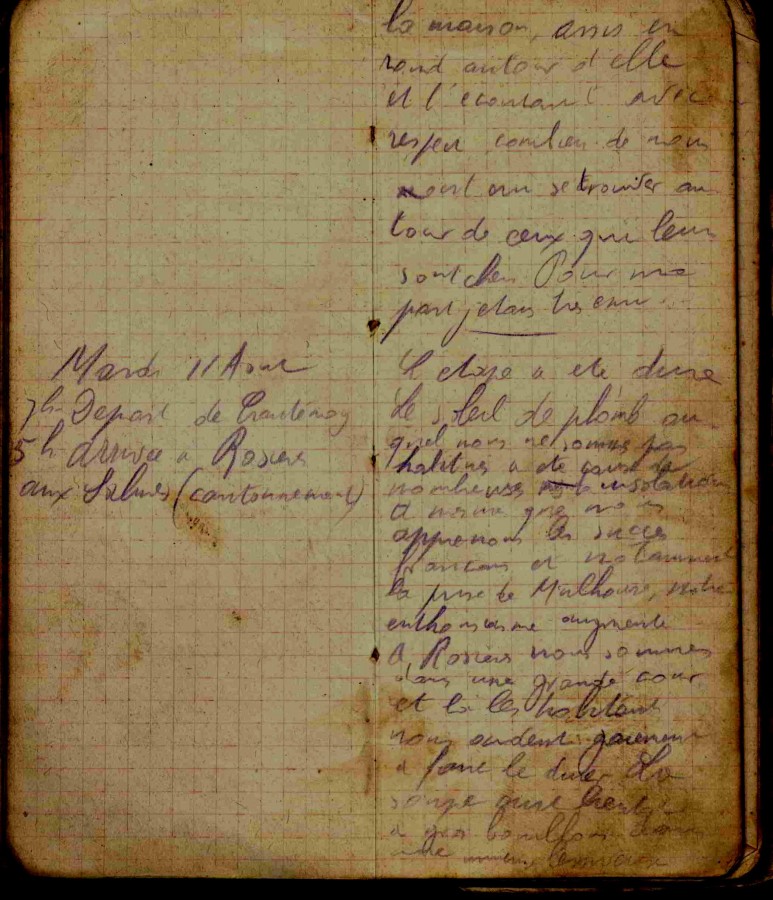 Mardi 11 Aout
7h Depart de
5h arrivée a Rosieres
aux Salines (cantonnement)
la maison, assis en
rond autour d'elle
et l'ecoutant avec
respect combien de nous
se trouver au
tour de ceux qui leur
sont chers Pour ma
part j'etais tres emu
L'etape a ete dure
Le soleil de plomb au
quel nous ne sommes pas
habitues a ete cause de
nombreuses insolations
A mesure que nous
apprenons les succes
francais et notamment
la prise de Mulhouse, notre
enthousiasme augmente
A Rosieres nous sommes
dans une grande cour
et la les habitants
nous aident gaiement
a faire le diner La
soupe
a gros bouillons dans